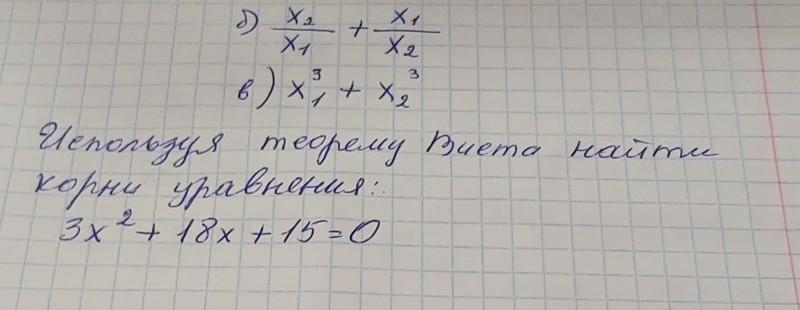 б) x₂/x₁ + x₁/x₂
в) x₁³ + x₂³
Используя теорему Виета найти
корни уравнения:
3x² + 18x + 15 = 0